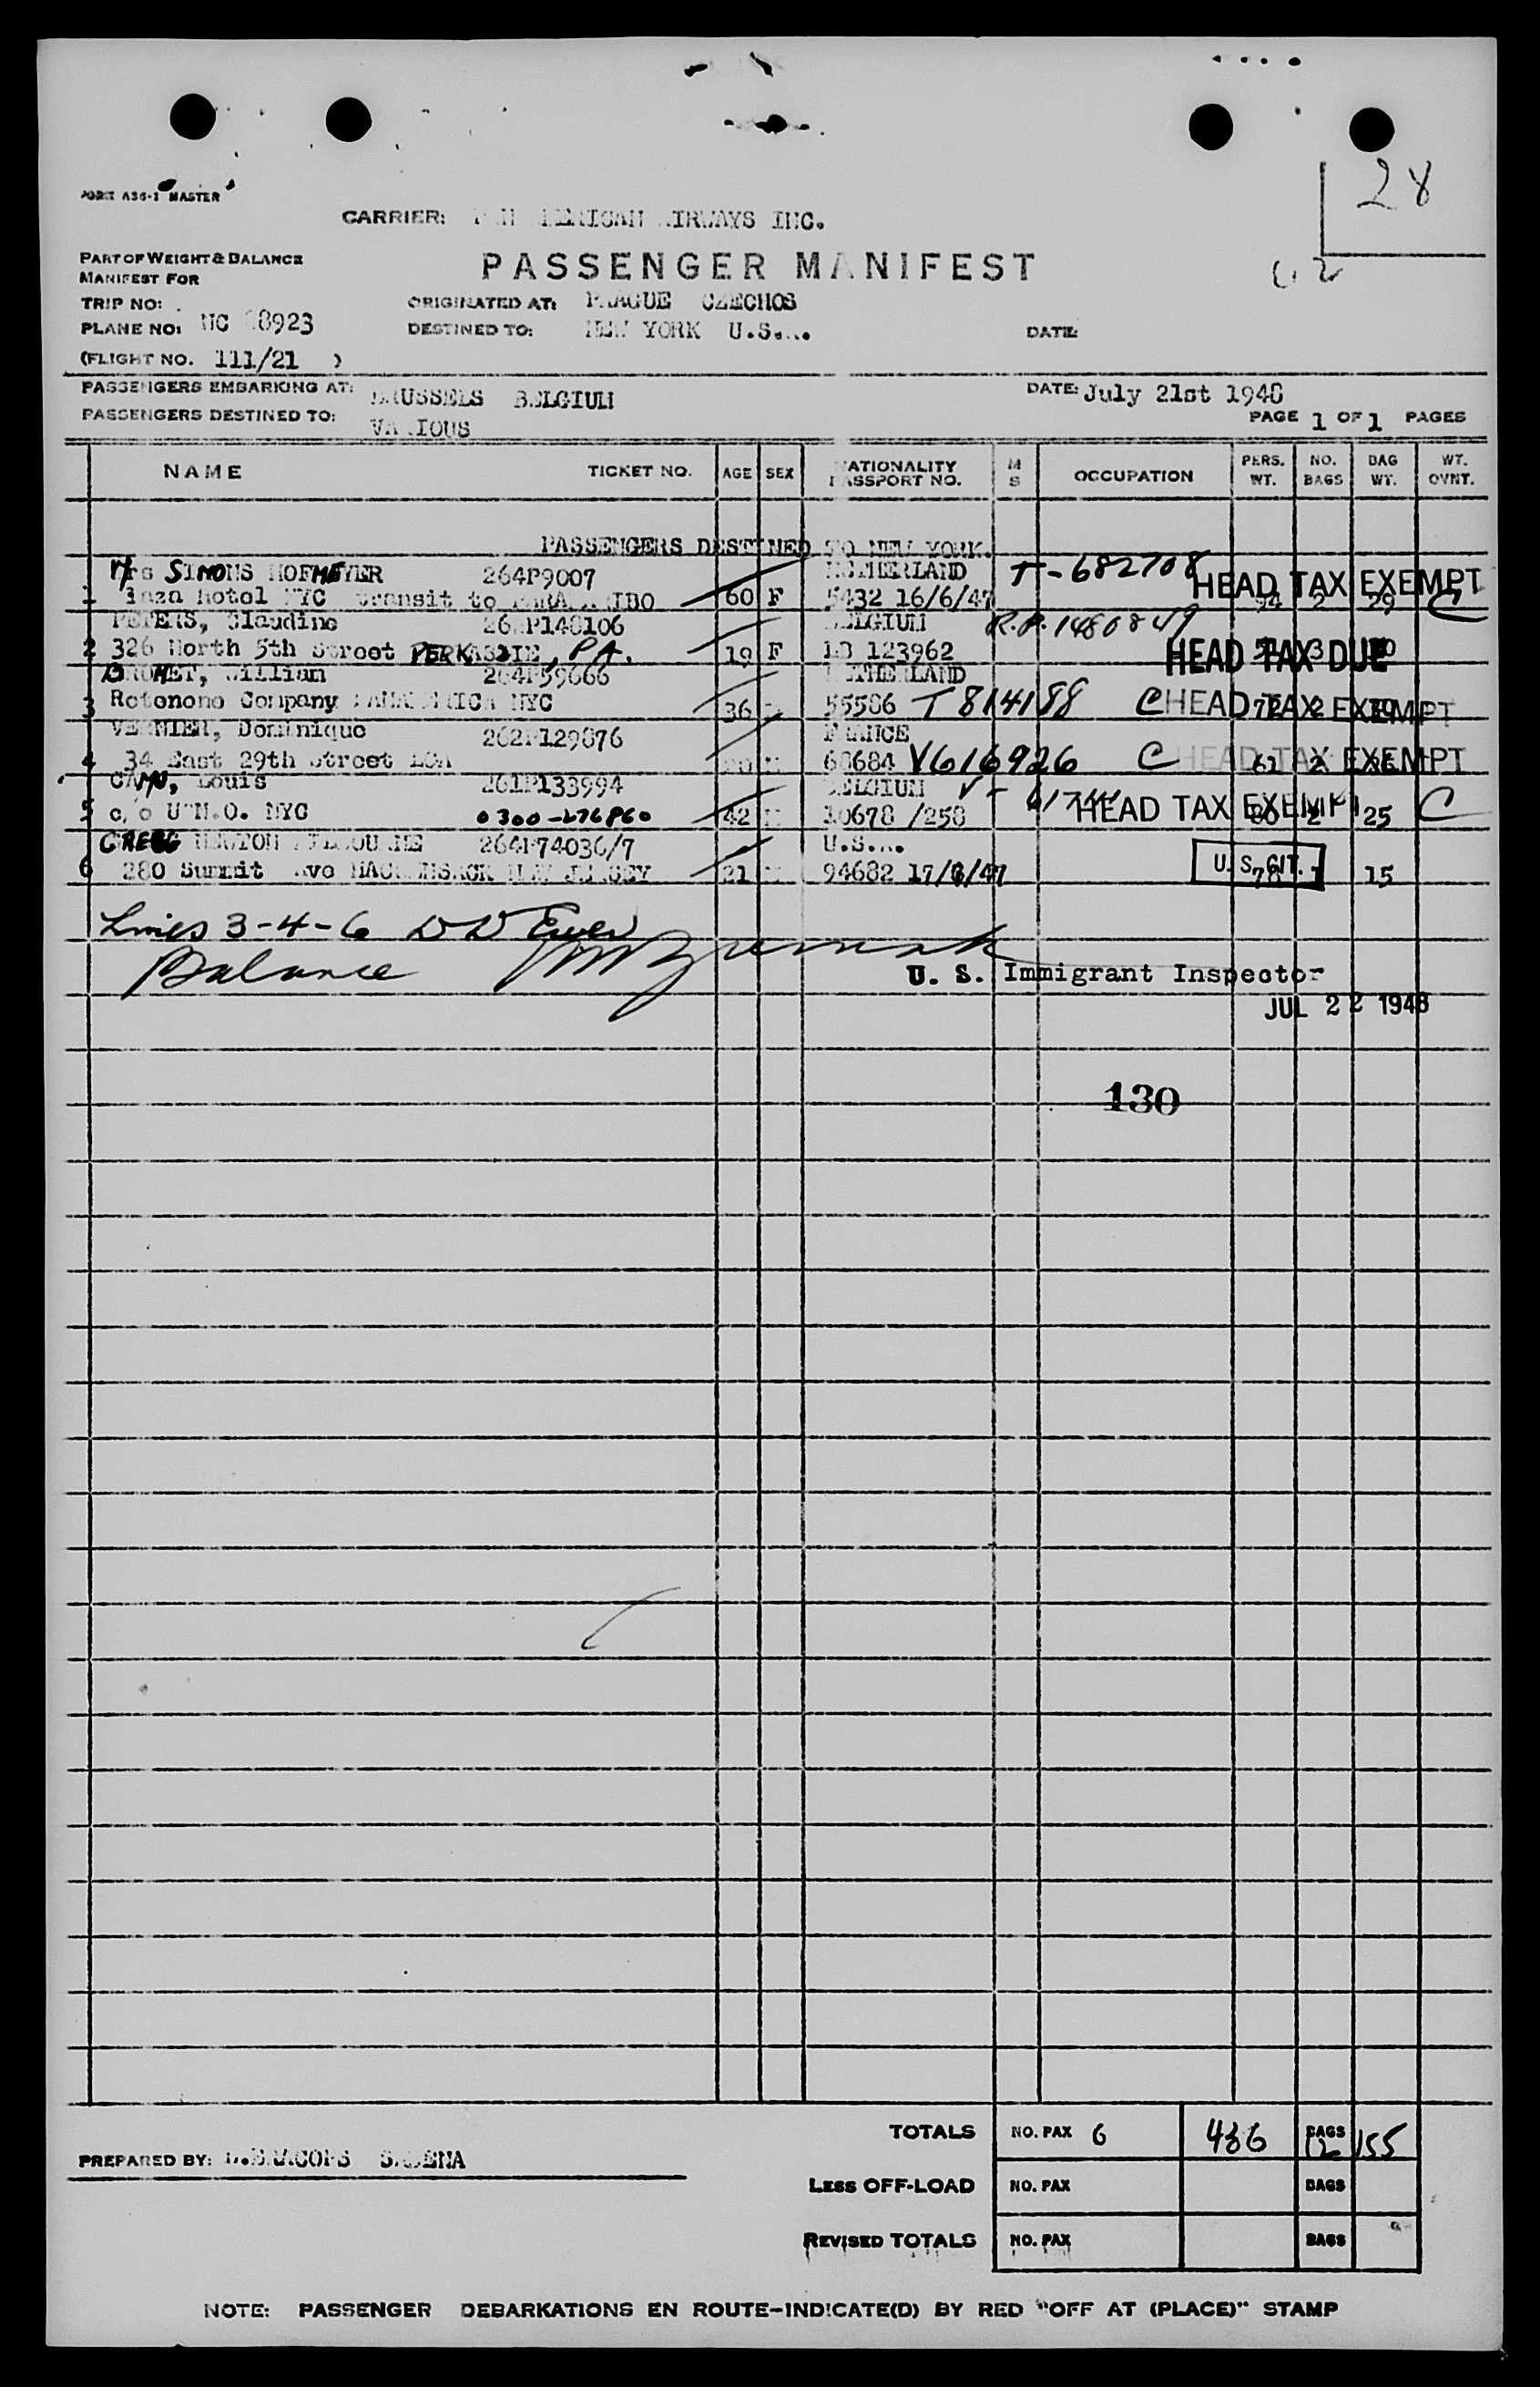 FORM A36-1 MASTER
28
CARRIER: AMERICAN AIRWAYS INC.
PART OF WEIGHT & BALANCE
MANIFEST FOR
PASSENGER MANIFEST
TRIP NO:
ORIGINATED AT: PRAGUE CZECHOS
PLANE NO: NC 88923
DESTINED TO: NEW YORK U.S.A.
DATE:
(FLIGHT NO. 111/21 )
PASSENGERS EMBARKING AT: BRUSSELS BELGIUM
DATE: July 21st 1948
PASSENGERS DESTINED TO: VARIOUS
PAGE 1 OF 1 PAGES
NAME TICKET NO. AGE SEX NATIONALITY PASSPORT NO. M S OCCUPATION PERS. WT. NO. BAGS BAG WT. WT. OVNT.
PASSENGERS DESTINED TO NEW YORK.
Mrs SIMONS HOFMEYER 264P9007 NETHERLAND T-682708 HEAD TAX EXEMPT
1 Plaza Hotel NYC transit to PARAMARIBO 60 F 5432 16/6/47 94 2 29 C
PETERS, Claudine 26 P148106 BELGIUM R.P. 1480849
2 326 North 5th Street PERKASIE, PA. 19 F LB 123962 HEAD TAX DUE 3
BROMET, William 264P59666 NETHERLAND
3 Rotenone Company NYC 36 55586 T 814188 C HEAD TAX EXEMPT 2
VERNIER, Dominique 262P129876 FRANCE
4 34 East 29th Street 68684 V616926 C HEAD TAX EXEMPT 61 2
CAMU, Louis 261P133994 BELGIUM V-
5 c/o U N.O. NYC 0300-276860 42 M 10678 /258 HEAD TAX EXEMPT 2 25 C
GREGG NEWTON 264P74036/7 U.S.A.
6 280 Summit Ave HACKENSACK NEW JERSEY 21 M 94682 17/ /47 U.S. CIT. 78 1 15
Lines 3-4-6
Balance
U. S. Immigrant Inspector
JUL 22 1948
130
TOTALS NO. PAX 6 436 BAGS 12 155
PREPARED BY: SABENA
LESS OFF-LOAD NO. PAX BAGS
REVISED TOTALS NO. PAX BAGS
NOTE: PASSENGER DEBARKATIONS EN ROUTE-INDICATE(D) BY RED "OFF AT (PLACE)" STAMP